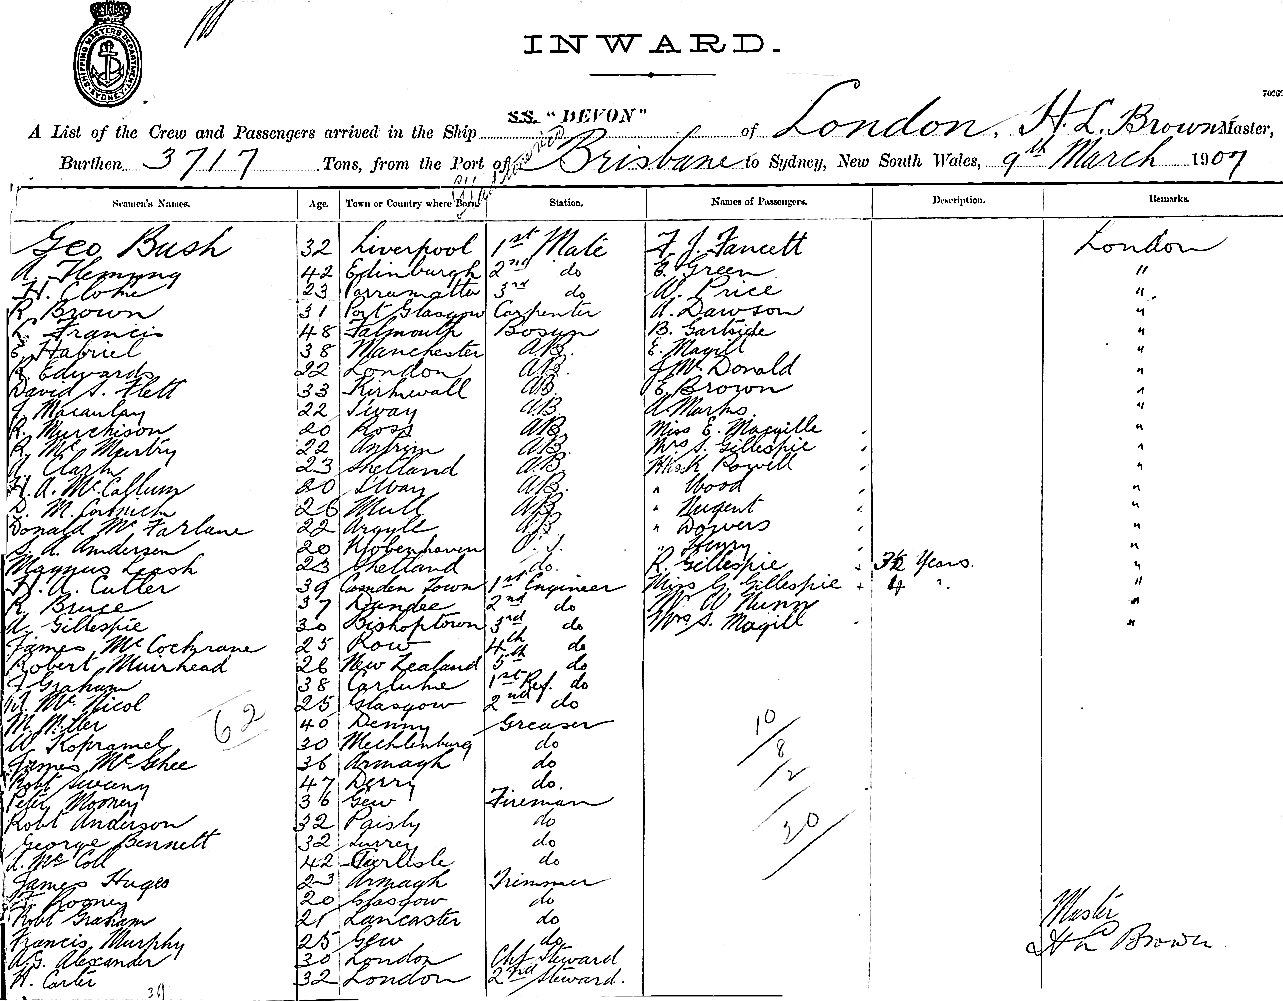 SHIPPING MASTERS DEPARTMENT SYDNEY
INWARD.
70262
S.S. "DEVON"
A List of the Crew and Passengers arrived in the Ship of London, H. L. Brown Master,
Burthen 3717 Tons, from the Port of Brisbane to Sydney, New South Wales, 9th March 1907
Seamen's Names. Age. Town or Country where Born. Station. Names of Passengers. Description. Remarks.
Geo Bush 32 Liverpool 1st Mate F. J. Fancett London
A. Fleming 42 Edinburgh 2nd do E. Green "
H. 23 Parramatta 3rd do W. Price "
R Brown 31 Port Glasgow Carpenter A. Dawson "
Francis 48 Falmouth Bosun B. Gartside "
E. Gabriel 38 Manchester A.B. E. Magill "
R Edwards 22 London A.B. J. McDonald "
David S. Flett 33 Kirkwall A.B. E. Brown "
J. Macaulay 22 S'way A.B. A Marks. "
R. Murchison 20 Ross A.B. Miss E. Macgille "
R. Mc Murtry 22 Antrim A.B. Mrs S. Gillespie "
A Clark 23 Shetland A.B. K Powell "
H. A. McCallum 20 S'way A.B. " Wood "
D. M. Cormich 26 Mull A.B. " Nugent "
Donald McFarlane 22 Argyle A.B. " Dowers "
S. A. Andersen 20 Kjobenhaven O.S. " Henry "
Magnus Leask 23 Shetland do. R. Gillespie Years. "
H. A. Cutler 39 Camden Town 1st Engineer Miss G. Gillespie 4 " "
R. Bruce 37 Dundee 2nd do Mr W Nunn "
A. Gillespie 30 Bishoptown 3rd do Mrs S. Magill "
James McCochrane 25 Row 4th do
Robert Muirhead 26 New Zealand 5th do
F Graham 38 Carluke 1st Ref. do
W. McNicol 25 Glasgow 2nd do
M. Miller 40 Denny Greaser
62
W. Kopramel 30 Mechlenburg do
10
James McGhee 36 Armagh do
8
Robt Sweeny 47 Derry do.
12
Peter Mooney 36 Gew Fireman
Robt Anderson 32 Paisly do
30
George Bennett 32 Surrey do
A. McColl 42 Carlisle do
James Huges 23 Armagh Trimmer
Rooney 20 Glasgow do
Robt Graham 21 Lancaster do Master
Francis Murphy 25 Gew do H L Brown
A. G. Alexander 30 London Chf Steward
H. Carter 32 London 2nd Steward.
39